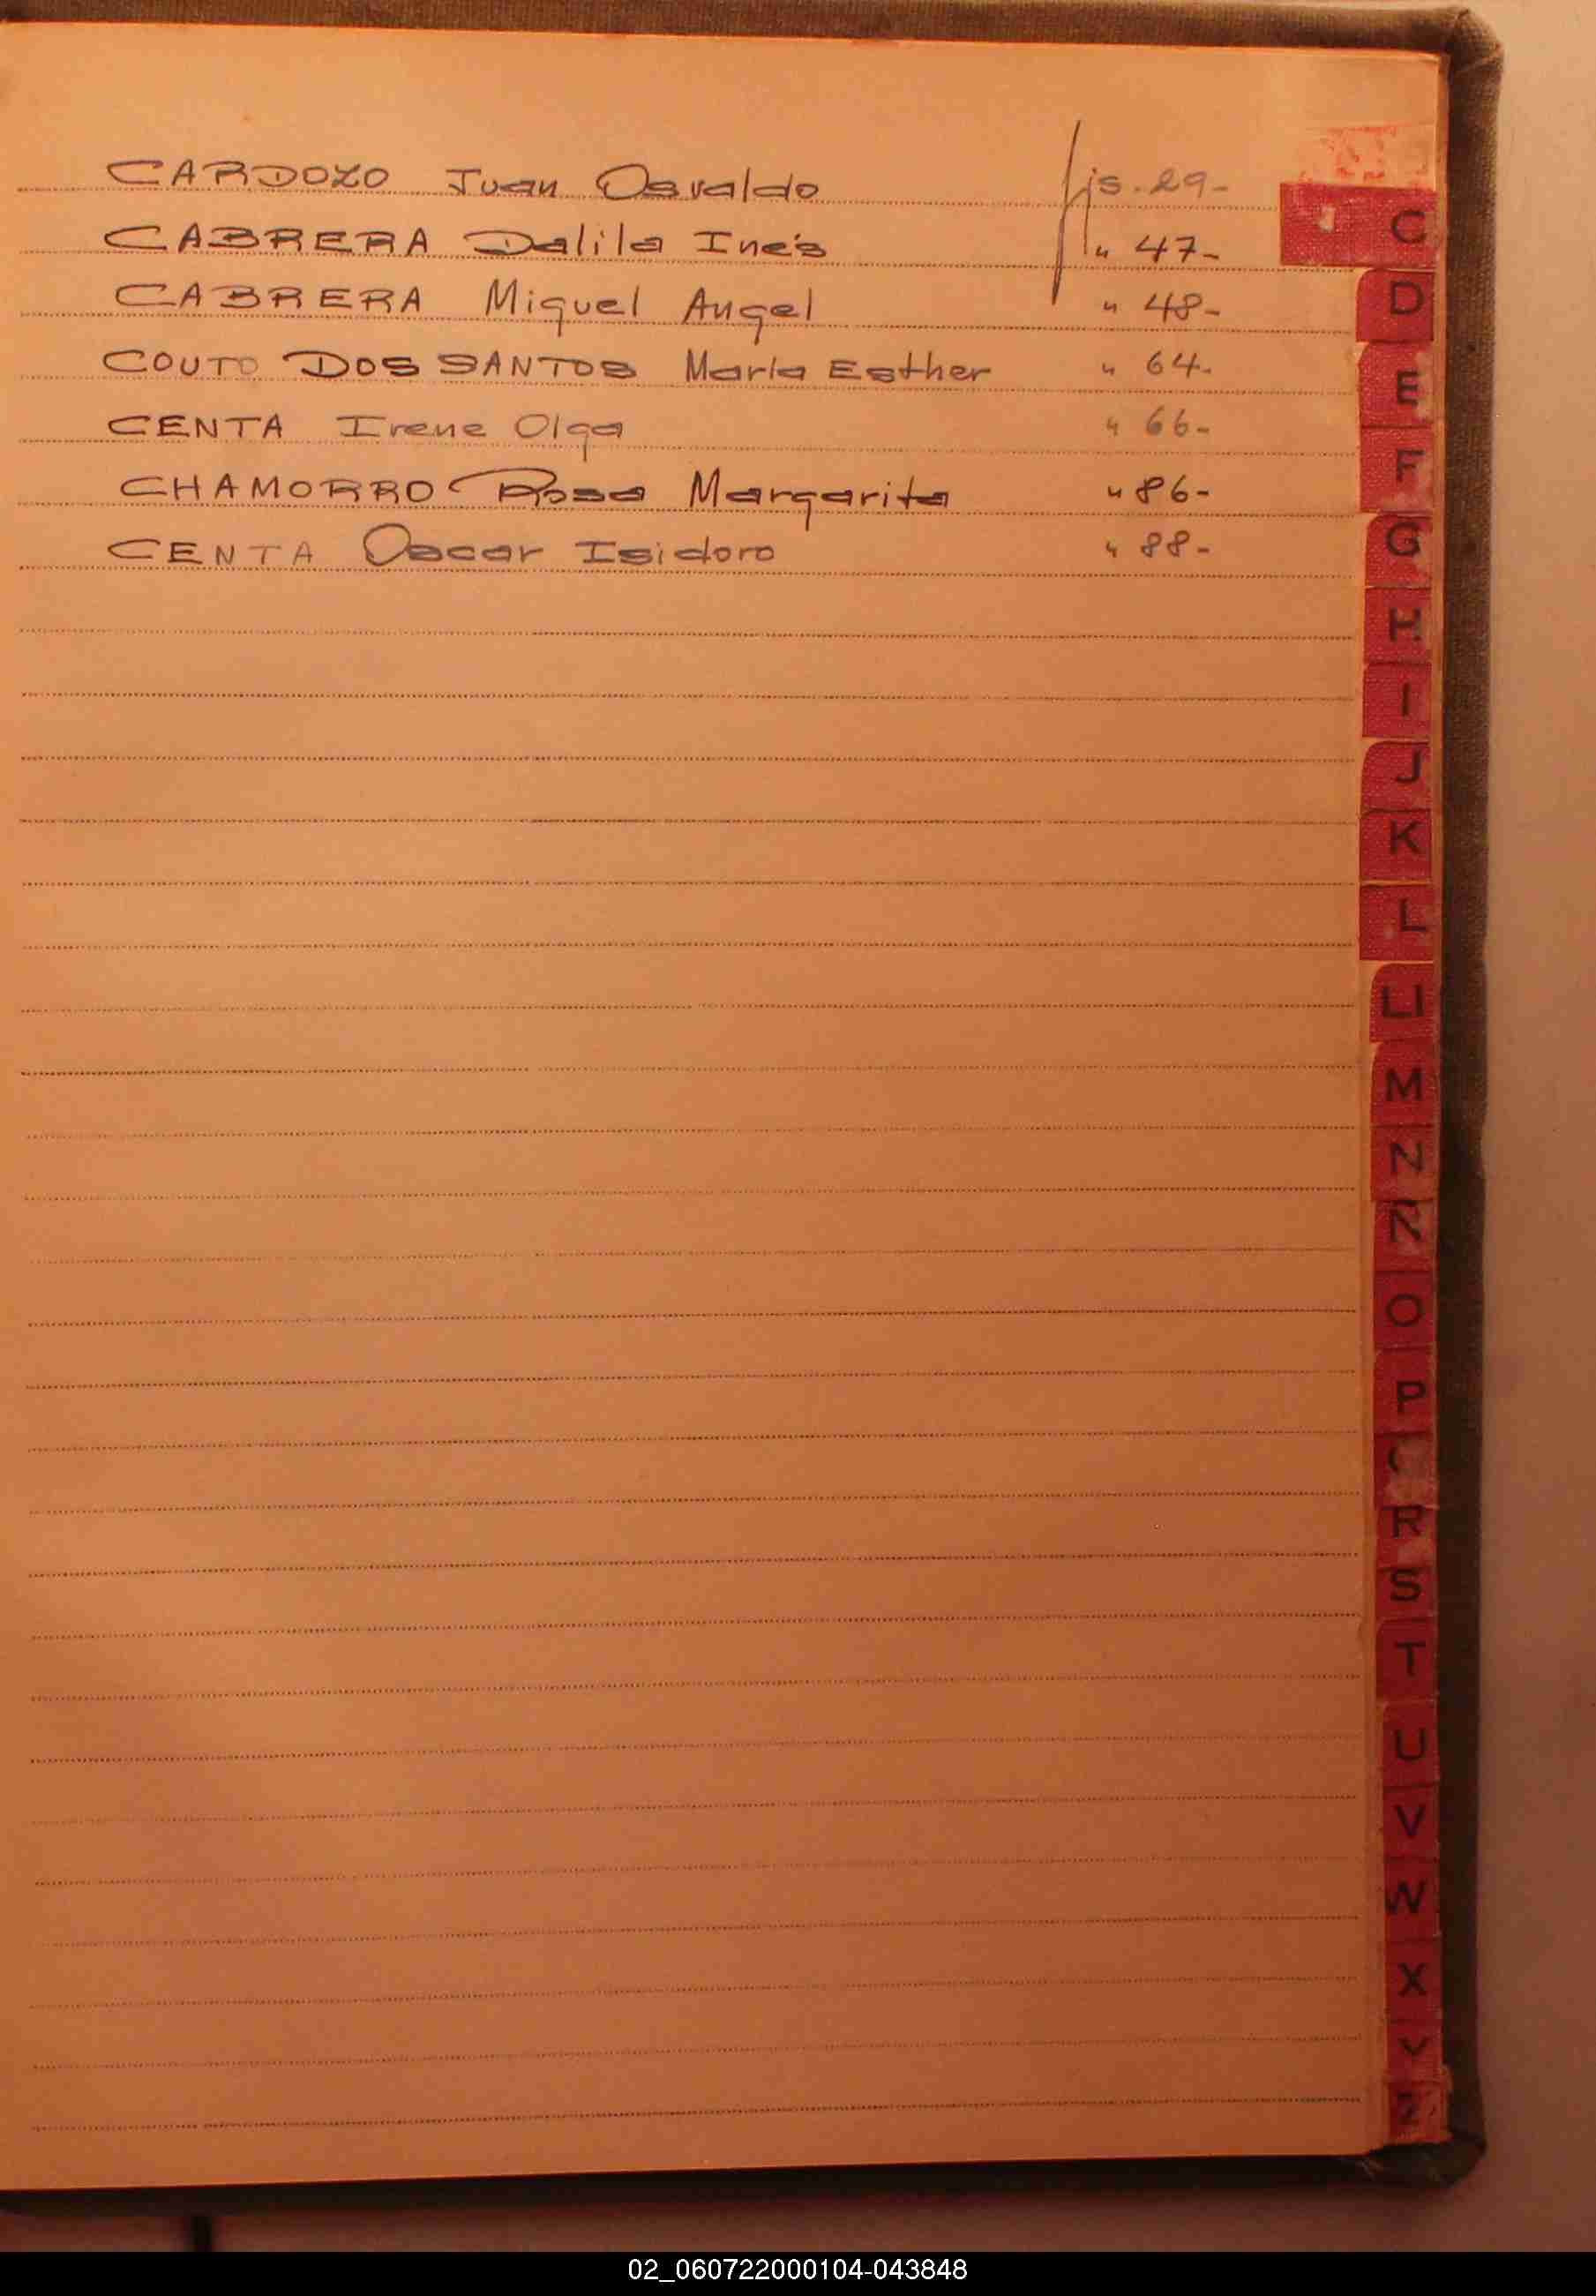 CARDOZO Juan Osvaldo fjs. 29-
CABRERA Dalila Inés " 47-
CABRERA Miguel Angel " 48-
COUTO DOS SANTOS María Esther " 64-
CENTA Irene Olga " 66-
CHAMORRO Rosa Margarita " 86-
CENTA Oscar Isidoro " 88-
C
D
E
F
G
H
I
J
K
L
Ll
M
N
Ñ
O
P
R
S
T
U
V
W
X
Y
Z
02_060722000104-043848